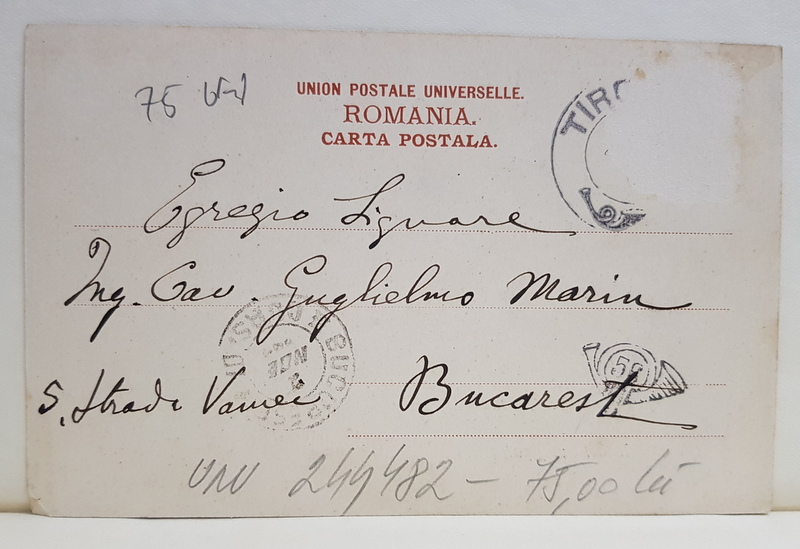 UNION POSTALE UNIVERSELLE.
ROMANIA.
CARTA POSTALA.
75
TIRG
Egregio Signore
Ing. Cav. Guglielmo Marin
5, Strada Vamei Bucarest
NOE
56
244482 – 75,00 lei